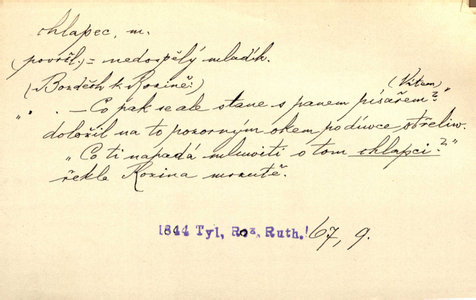 chlapec, m.
(povržl.) = nedospělý mladík.
(Bozděch k Rozině:) (Vítem)
". . – Co pak se ale stane s panem písařem?"
doložil na to pozorným okem po dívce střeliw.
"Co ti napadá mluwiti o tom chlapci?"
řekla Rozina mrzutě.
1844 Tyl, Roz. Ruth. 67, 9.